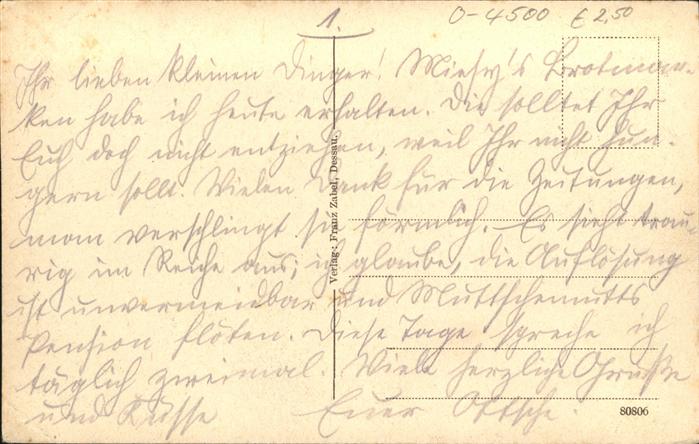 1.
O-4500 € 2,50
Ihr lieben kleinen Dinger! Brotmar-
ken habe ich heute erhalten. Die solltet Ihr
Euch doch nicht entziehen, weil Ihr nicht hun-
gern sollt. Vielen Dank für die Zeitungen,
man verschlingt sie förmlich. Es sieht trau-
rig im Reiche aus; ich glaube, die Auflösung
ist unvermeidbar und Muttschemutts
Pension flöten. Diese Tage spreche ich
täglich zweimal. Viele herzliche Grüsse
und Küsse Euer Ottsche.
Verlag: Franz Zabel, Dessau.
80806